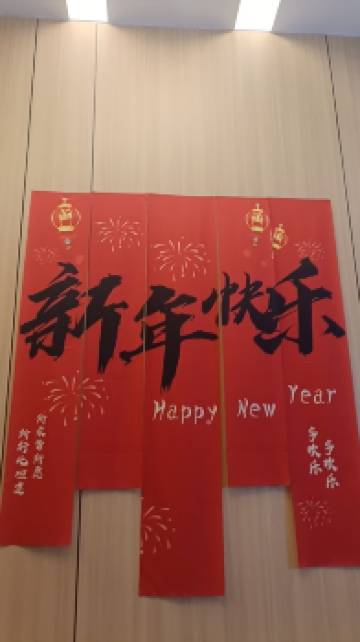 新年快乐
Happy New Year
所求皆所愿
所行化坦途
多欢乐
多欢乐